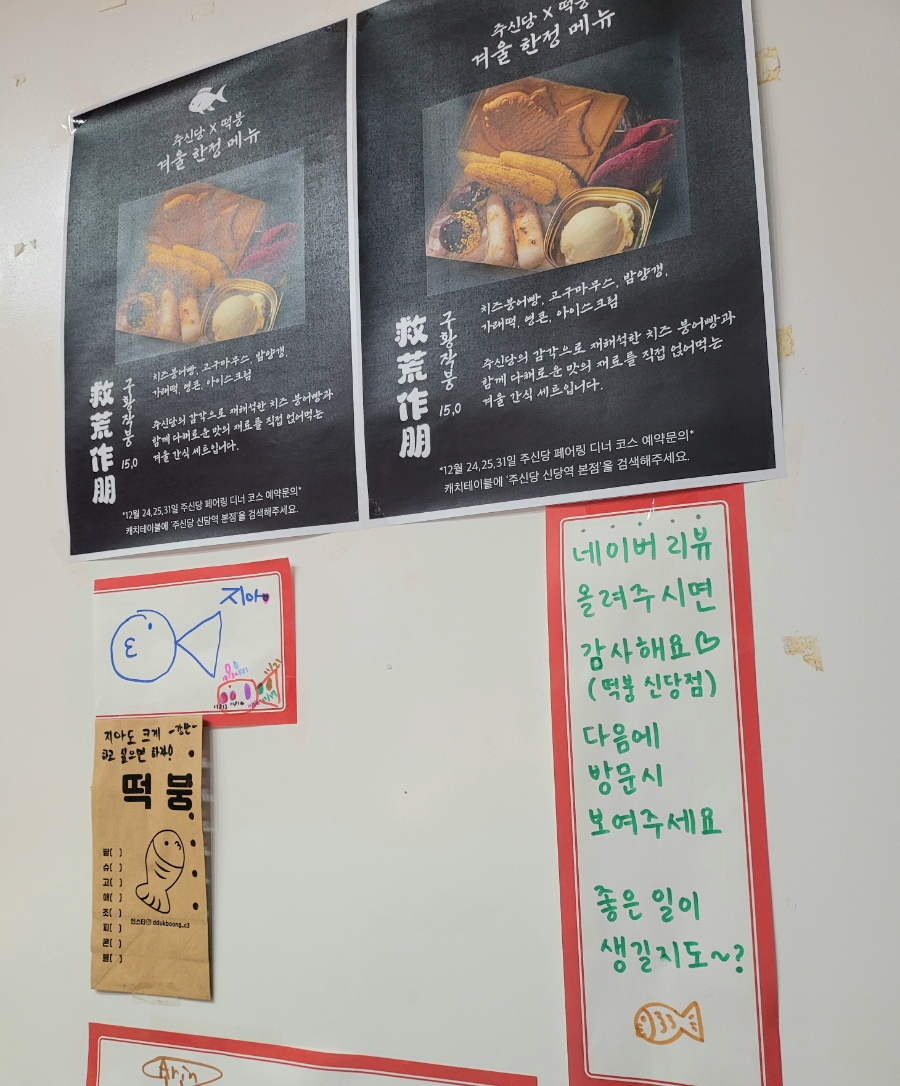 주신당 X 떡붕
겨울 한정 메뉴
치즈붕어빵, 고구마무스, 밤양갱,
가래떡, 영콘, 아이스크림
救荒作朋
구황작붕
15.0
주신당의 감각으로 재해석한 치즈 붕어빵과
함께 다채로운 맛의 재료를 직접 얹어먹는
겨울 간식 세트입니다.
*12월 24,25,31일 주신당 페어링 디너 코스 예약문의*
캐치테이블에 '주신당 신당역 본점'을 검색해주세요.
주신당 X 떡붕
겨울 한정 메뉴
치즈붕어빵, 고구마무스, 밤양갱,
가래떡, 영콘, 아이스크림
救荒作朋
구황작붕
15.0
주신당의 감각으로 재해석한 치즈 붕어빵과
함께 다채로운 맛의 재료를 직접 얹어먹는
겨울 간식 세트입니다.
*12월 24,25,31일 주신당 페어링 디너 코스 예약문의*
캐치테이블에 '주신당 신당역 본점'을 검색해주세요.
지아♥
지아도 크게
하고 싶으면 하자!
떡붕
팥( )
슈( )
고( )
애( )
초( )
피( )
콘( )
불( )
인스타 @ddukboong_c3
네이버 리뷰
올려주시면
감사해요♡
(떡붕 신당점)
다음에
방문시
보여주세요
좋은 일이
생길지도~?
Arin